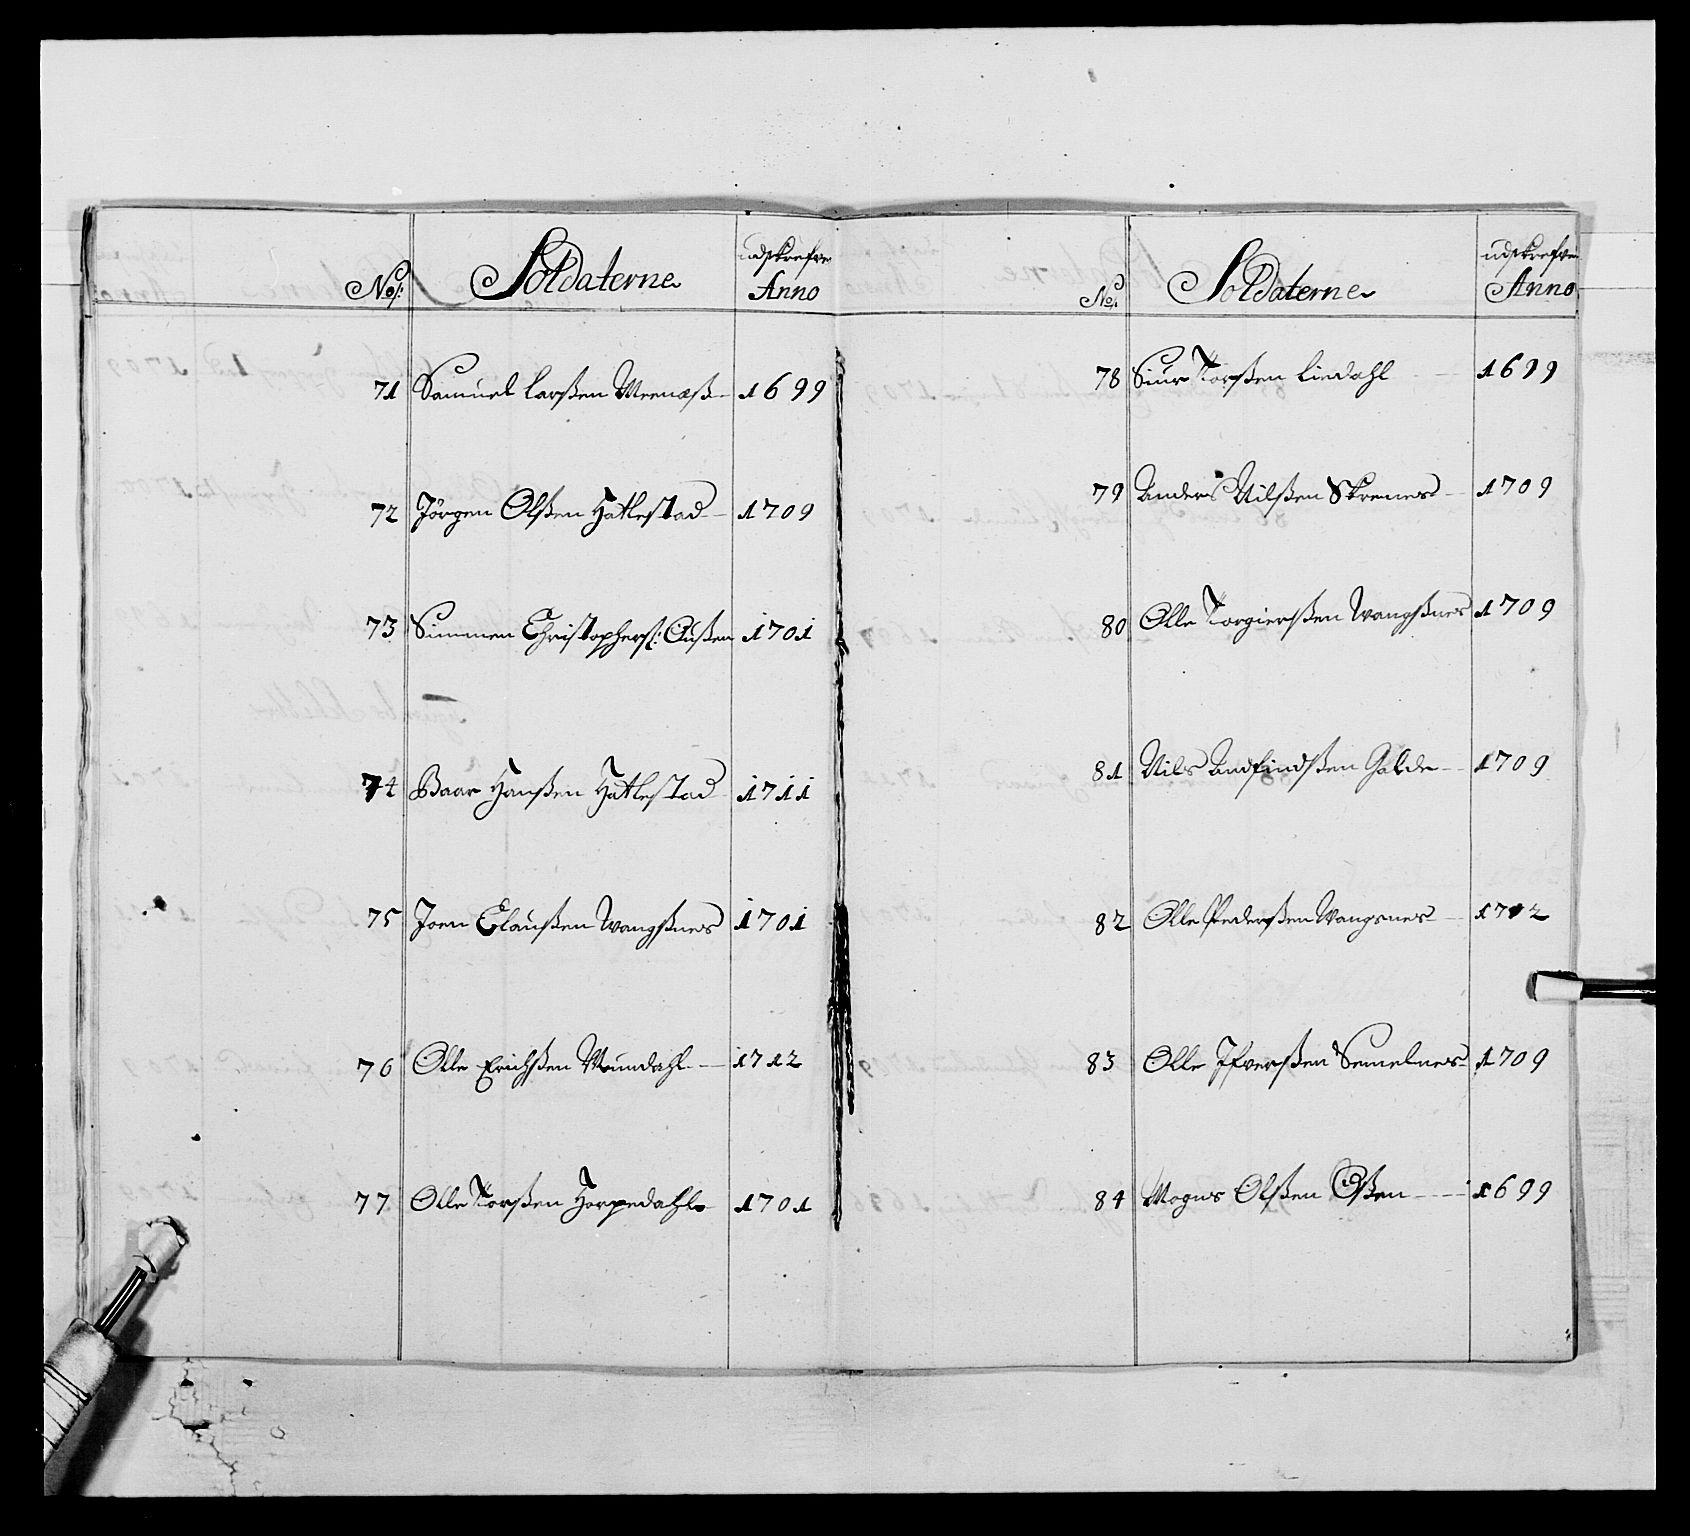 No: Soldaterne udskrefne Anno
71 Samuel Larßen Meenæß 1699
72 Jørgen Olßen Hatlestad 1709
73 Simmen Christophers: Außen 1701
74 Baar Hanßen Hatlestad 1711
75 Joen Claußen Wangßnes 1701
76 Olle Erichßen Mundahl 1712
77 Olle Torßen Horpedahl 1701
No: Soldaterne udskrefne Anno
78 Siur Torßen Liedahl 1699
79 Anders Nilßen Skrenes 1709
80 Olle Torgierßen Wangßnes 1709
81 Nils Andfindßen Galde 1709
82 Olle Pederßen Wangsnes 1712
83 Olle Ifverßen Semelnes 1709
84 Mogns Olßen Eßen 1699